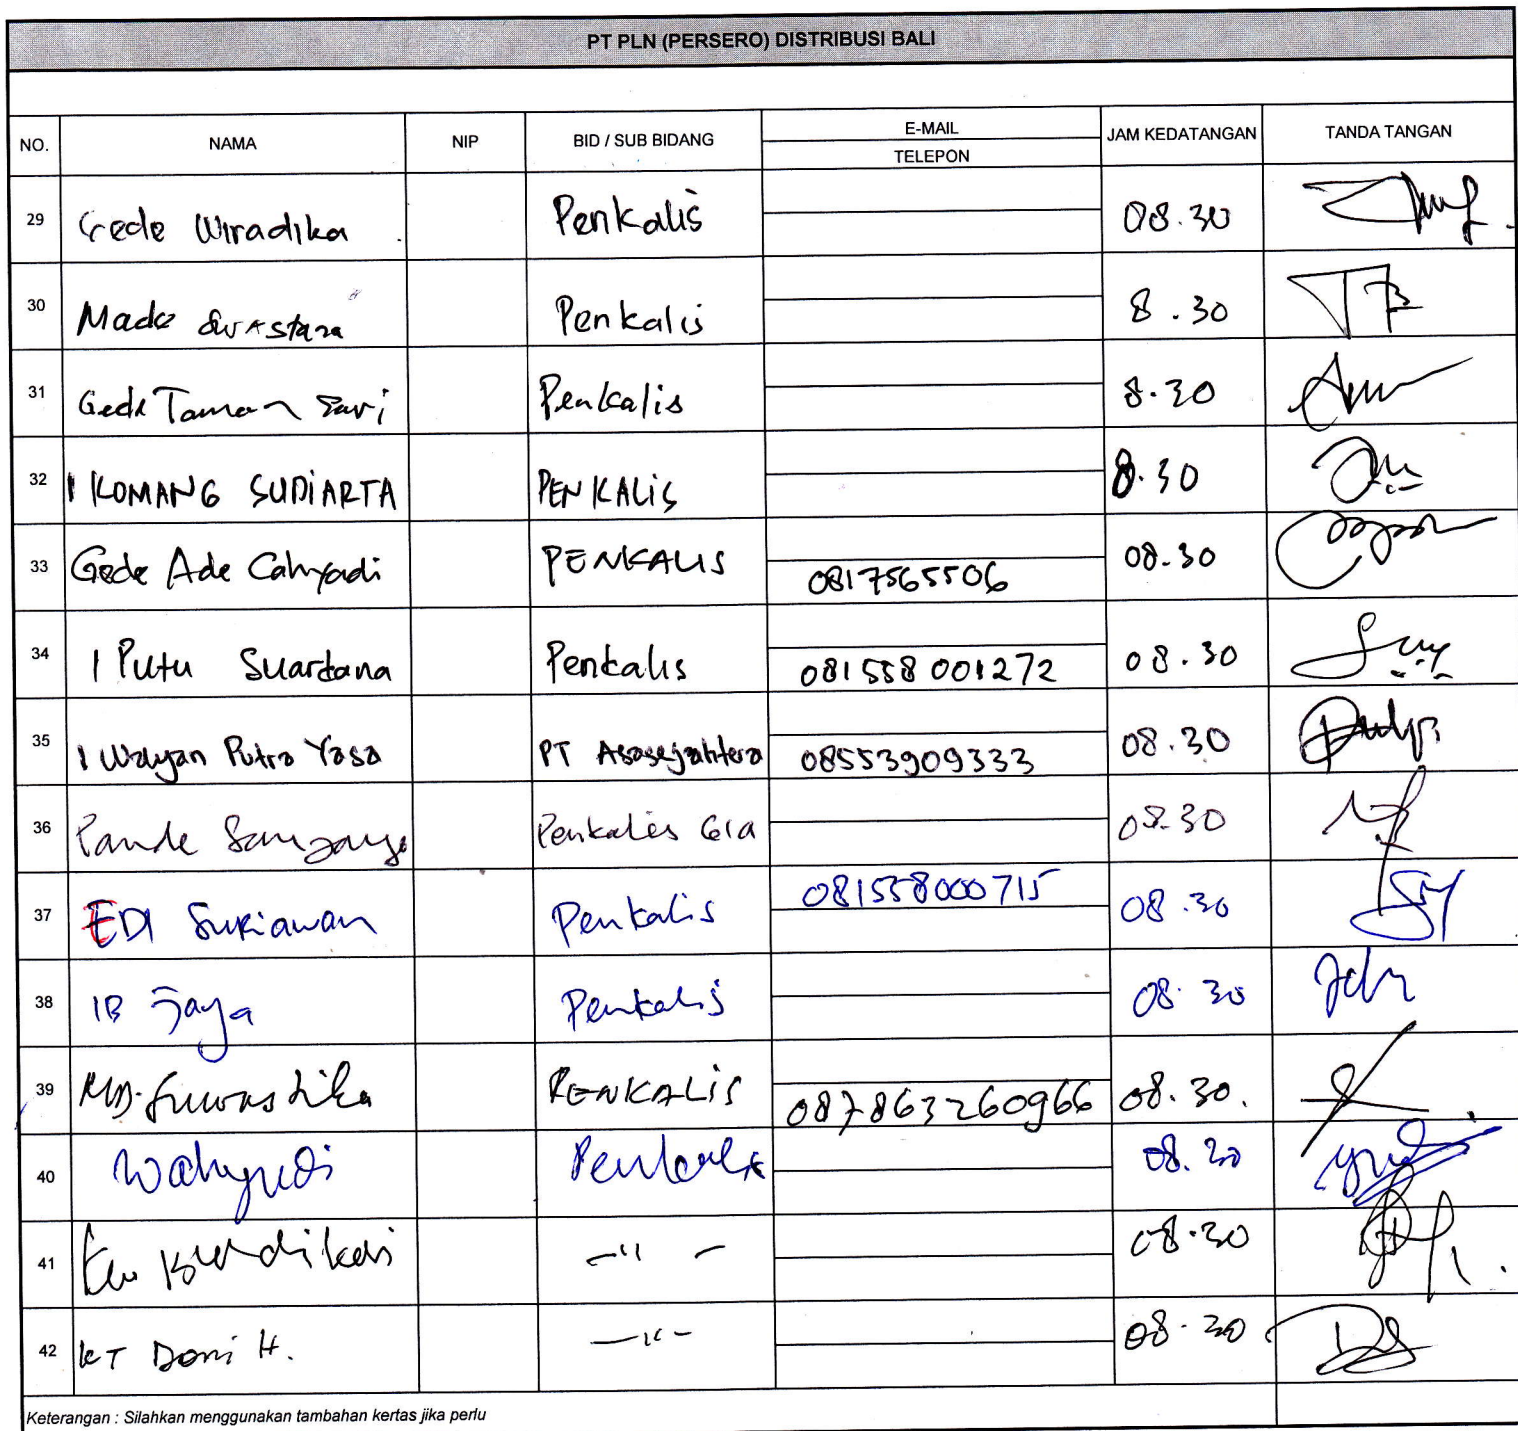 PT PLN (PERSERO) DISTRIBUSI BALI
NO. NAMA NIP BID / SUB BIDANG E-MAIL TELEPON JAM KEDATANGAN TANDA TANGAN
29 Gede Wiradika Penkalis 08.30
30 Made Swastara Penkalis 8.30
31 Gede Taman Sari Penkalis 8.30
32 I KOMANG SUDIARTA PENKALIS 8.30
33 Gede Ade Cahyadi PENKALIS 0817565506 08.30
34 I Putu Suardana Penkalis 081558001272 08.30
35 I Wayan Putra Yasa PT Asasejahtera 08553909333 08.30
36 Pande Penkalis 08.30
37 EDI Sukiawan Penkalis 081558000715 08.30
38 IB Jaya Penkalis 08.30
39 MD. Suwastika PENKALIS 087863260966 08.30.
40 Wahyudi Penkalis 08.30
41 —"— 08.30
42 KT Doni H. —"— 08.30
Keterangan : Silahkan menggunakan tambahan kertas jika perlu